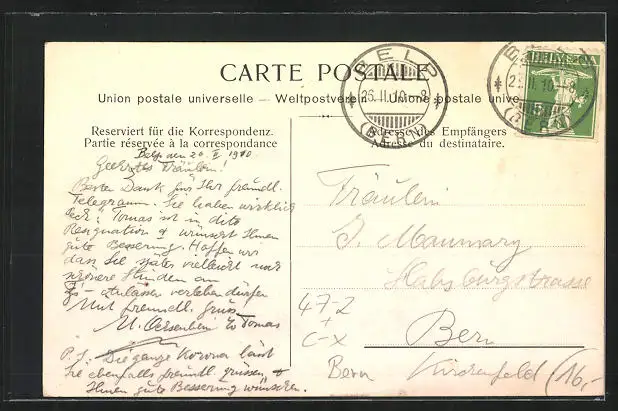 CARTE POSTALE
Union postale universelle — Weltpostverein — Unione postale univ
Reserviert für die Korrespondenz.
Partie réservée à la correspondance
Adresse des Empfängers
Adresse du destinataire.
BELP
26. II. 10 - 8
(BERN)
HELVETIA
Belp den 1910
Geehrtes Fräulein!
Besten Dank für Ihr freundl.
Telegramm. Sie haben wirklich
Pech! Tomas ist in dito
Resignation & wünscht Ihnen
gute Besserung. Hoffen wir
dass Sie später vielleicht noch
Stunden am
verleben dürfen
Mit freundl. Gruss
M. & Tomas
P.S. Die ganze Korona lässt
Sie ebenfalls freundl. grüssen &
Ihnen gute Besserung wünschen.
Fräulein
Habsburgstrasse
Bern
Kirchenfeld
47-2
+
C-X
Bern
16,-